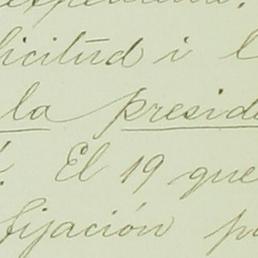 licitud i l
la preside
. El 19 que
fijación p